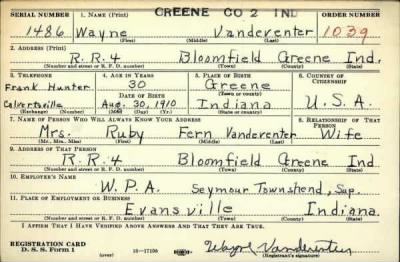 GREENE CO 2 IND
SERIAL NUMBER 1. NAME (Print) ORDER NUMBER
1486 Wayne Vandeventer 1039
(First) (Middle) (Last)
2. ADDRESS (Print)
R.R.4 Bloomfield Greene Ind.
(Number and street or R. F. D. number) (Town) (County) (State)
3. TELEPHONE 4. AGE IN YEARS 5. PLACE OF BIRTH 6. COUNTRY OF CITIZENSHIP
Frank Hunter 30 Greene
DATE OF BIRTH (Town or county)
Calvertsville Aug. 30, 1910 Indiana U.S.A.
(Exchange) (Number) (Mo.) (Day) (Yr.) (State or country)
7. NAME OF PERSON WHO WILL ALWAYS KNOW YOUR ADDRESS 8. RELATIONSHIP OF THAT PERSON
Mrs. Ruby Fern Vandeventer Wife
(Mr., Mrs., Miss) (First) (Middle) (Last)
9. ADDRESS OF THAT PERSON
R.R.4 Bloomfield Greene Ind
(Number and street or R. F. D. number) (Town) (County) (State)
10. EMPLOYER'S NAME
W.P.A. Seymour Townshend, Sup.
11. PLACE OF EMPLOYMENT OR BUSINESS
Evansville Indiana.
(Number and street or R. F. D. number) (Town) (County) (State)
I AFFIRM THAT I HAVE VERIFIED ABOVE ANSWERS AND THAT THEY ARE TRUE.
REGISTRATION CARD
D. S. S. Form 1 (over) 16—17105 Wayne Vandeventer
(Registrant's signature)